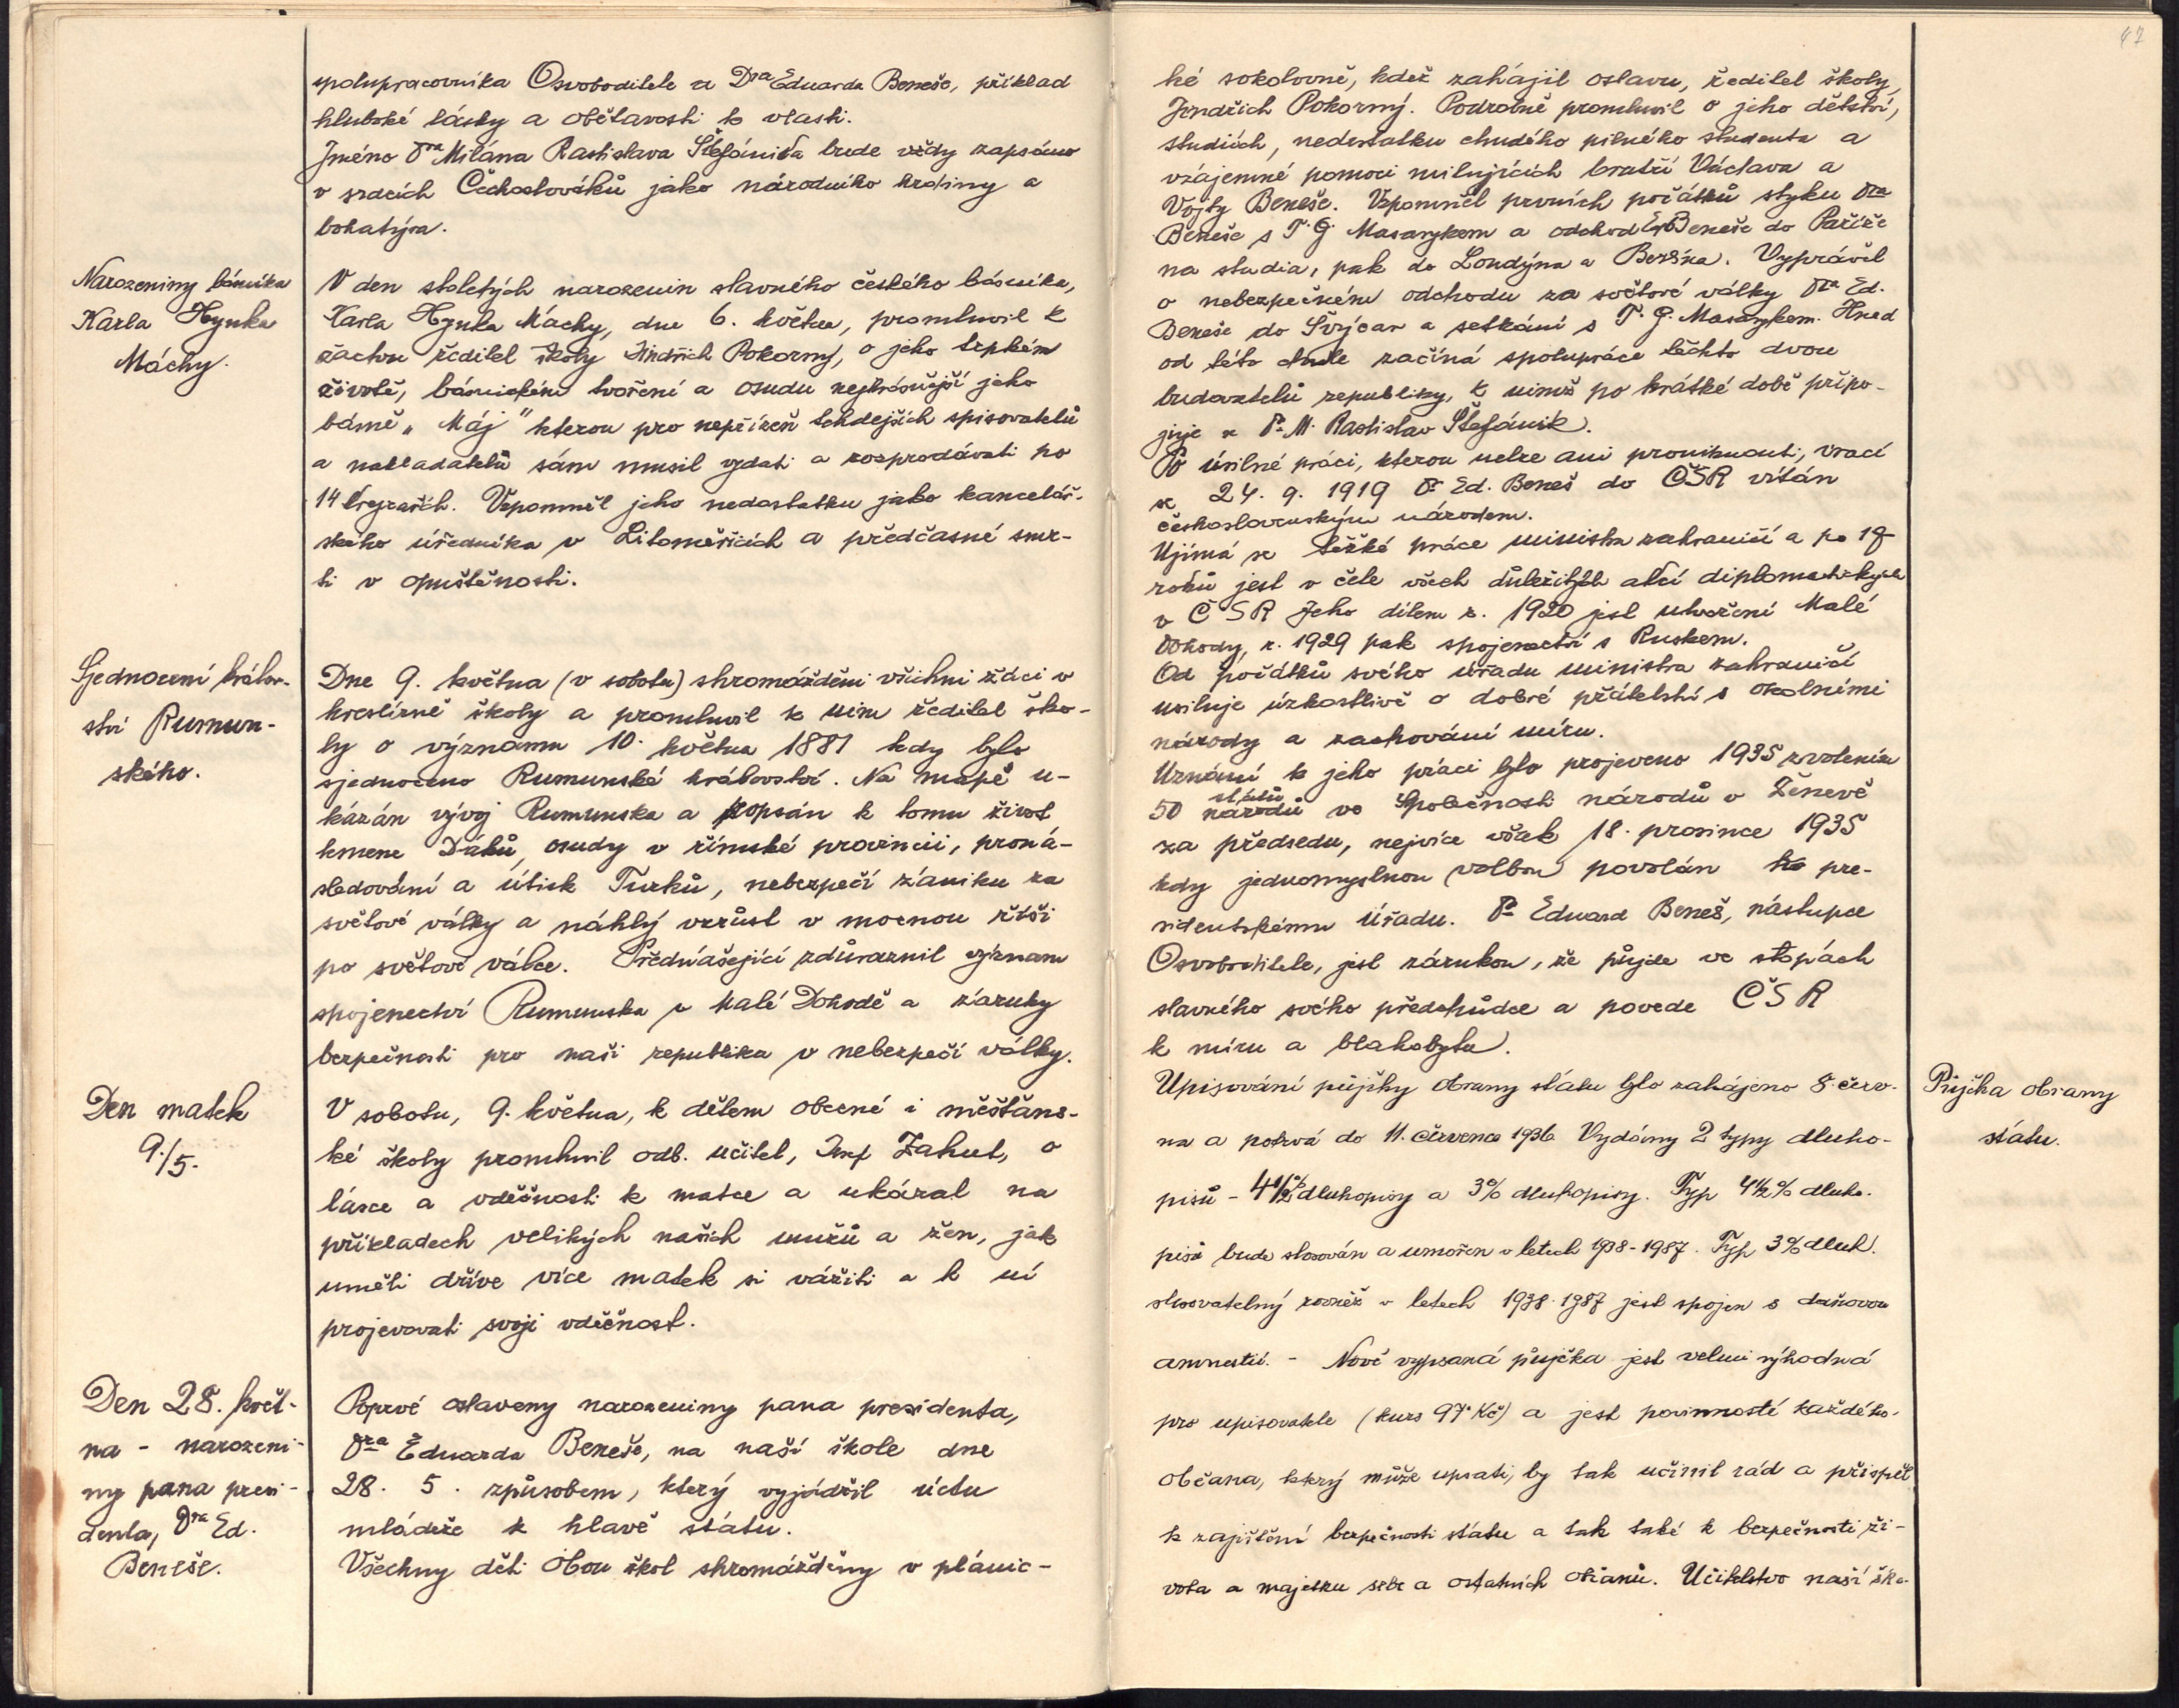 spolupracovníka Osvoboditele a Dra Eduarda Beneše, příklad
hluboké lásky a obětavosti k vlasti.
Jméno Dra Milána Rastislava Štefánika bude vždy zapsáno
v srdcích Čechoslováků jako národního hrdiny a
bohatýra.
Narozeniny básníka
Karla Hynka
Máchy.
V den stoletých narozenin slavného českého básníka,
Karla Hynka Máchy, dne 6. května, promluvil k
žactvu ředitel školy Jindřich Pokorný, o jeho trpkém
životě, básnickém tvoření a osudu nejkrásnější jeho
básně „Máj" kterou pro nepřízeň tehdejších spisovatelů
a nakladatelů sám musil vydati a rozprodávati po
14 krejcařích. Vzpomněl jeho nedostatku jako kancelář-
ského úředníka v Litoměřicích a předčasné smr-
ti v opuštěnosti.
Sjednocení králov-
ství Rumun-
ského.
Dne 9. května (v sobotu) shromážděni všichni žáci v
kreslírně školy a promluvil k nim ředitel ško-
ly o významu 10. května 1881 kdy bylo
sjednoceno Rumunské království. Na mapě u-
kázán vývoj Rumunska a popsán k tomu život
kmene Dáků, osudy v římské provincii, proná-
sledování a útisk Turků, nebezpečí zániku za
světové války a náhlý vzrůst v mocnou říši
po světové válce. Přednášející zdůraznil význam
spojenectví Rumunska v Malé Dohodě a záruky
bezpečnosti pro naši republiku v nebezpečí války.
Den matek
9./5.
V sobotu, 9. května, k dětem obecné i měšťans-
ké školy promluvil odb. učitel, Josef Zahut, o
lásce a vděčnosti k matce a ukázal na
příkladech velikých našich mužů a žen, jak
uměli dříve více matek si vážiti a k ní
projevovati svoji vděčnost.
Den 28. květ-
na - narozeni-
ny pana presi-
denta, Dra Ed.
Beneše.
Poprvé oslaveny narozeniny pana presidenta,
Dra Eduarda Beneše, na naší škole dne
28. 5. způsobem, který vyjádřil úctu
mládeže k hlavě státu.
Všechny děti obou škol shromážděny v plánic-
47
ké sokolovně, kdež zahájil oslavu, ředitel školy,
Jindřich Pokorný. Podrobně promluvil o jeho dětství,
studiích, nedostatku chudého pilného studenta a
vzájemné pomoci milujících bratří Václava a
Vojty Beneše. Vzpomněl prvních počátků styku Dra
Beneše s T. G. Masarykem a odchod E. Beneše do Paříže
na studia, pak do Londýna a Berlína. Vyprávěl
o nebezpečném odchodu za světové války Dra Ed.
Beneše do Švýcar a setkání s T. G. Masarykem. Hned
od této chvíle začíná spolupráce těchto dvou
budovatelů republiky, k nimž po krátké době připo-
juje se Dr. M. Rastislav Štefánik.
Po úsilné práci, kterou nelze ani proniknouti, vrací
se 24. 9. 1919 Dr Ed. Beneš do ČSR vítán
československým národem.
Ujímá se těžké práce ministra zahraničí a po 17
roků jest v čele všech důležitých akcí diplomatických
v ČSR Jeho dílem r. 1920 jest utvoření Malé
Dohody, r. 1929 pak spojenectví s Ruskem.
Od počátků svého úřadu ministra zahraničí
usiluje úzkostlivě o dobré přátelství s okolními
národy a zachování míru.
Uznání k jeho práci bylo projeveno 1935 zvolením
států
50 národů ve Společnosti národů v Ženevě
za předsedu, nejvíce však 18. prosince 1935
kdy jednomyslnou volbou povolán ku pre-
sidentskému úřadu. Dr Eduard Beneš, nástupce
Osvoboditele, jest zárukou, že půjde ve stopách
slavného svého předchůdce a povede ČSR
k míru a blahobytu.
Půjčka obrany
státu.
Upisování půjčky obrany státu bylo zahájeno 8. červ-
na a potrvá do 11. července 1936. Vydány 2 typy dluho-
pisů - 4½% dluhopisy a 3% dluhopisy. Typ 4½% dluho-
pisů bude slosován a umořen v letech 1938-1987. Typ 3% dluh.
slosovatelný rovněž v letech 1938-1987 jest spojen s daňovou
amnestií. - Nově vypsaná půjčka jest velmi výhodná
pro upisovatele (kurs 97 Kč) a jest povinností každého
občana, který může upsati, by tak učinil rád a přispěl
k zajištění bezpečnosti státu a tak také k bezpečnosti ži-
vota a majetku sebe a ostatních občanů. Učitelstvo naší ško-